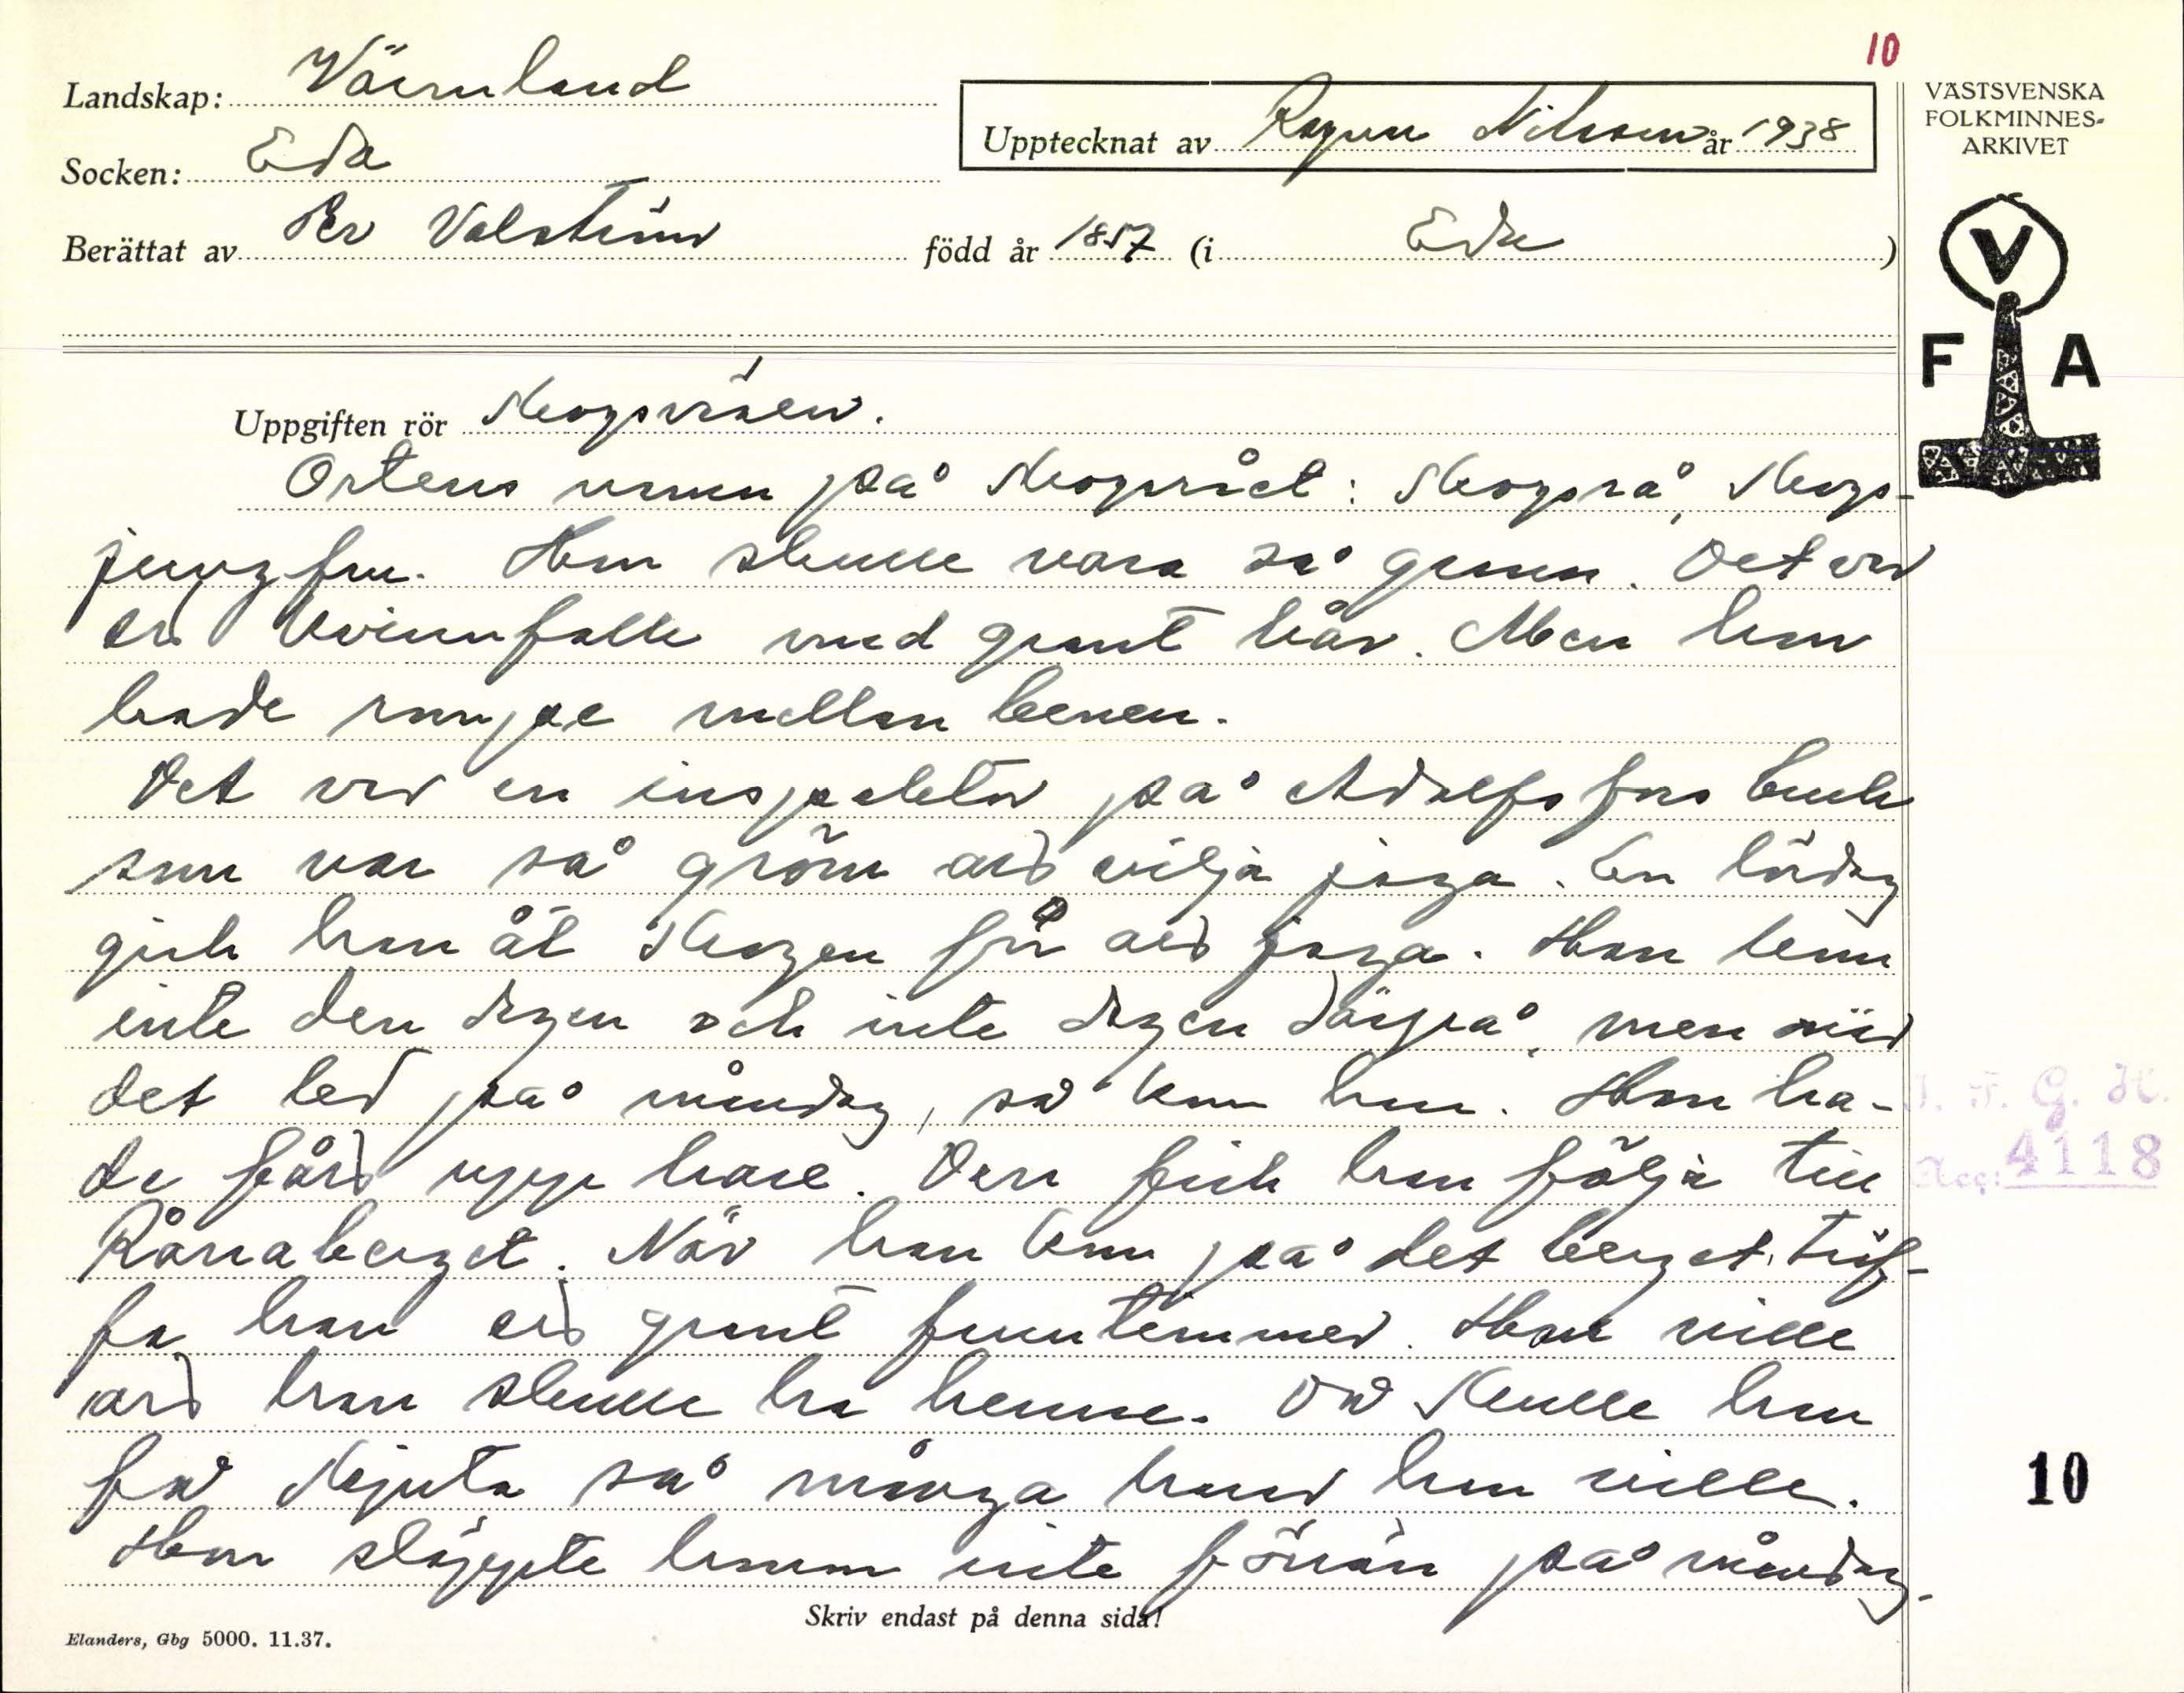 10
Landskap: Värmland
Upptecknat av Ragnar Nilsson år 1938
VÄSTSVENSKA
FOLKMINNES-
ARKIVET
Socken: Eda
Berättat av Per Valström född år 1857 (i Eda)
V
F A
Uppgiften rör Skogsråen.
Ortens namn på skogsrået: skogsrå, skogs-
jungfru. Hon skulle vara så grann. Det var
ett kvinnfolk med grant hår. Men hon
hade rumpe mellan benen.
Det var en inspektor på Adolfsfors bruk
som var så gröm att vilja jaga. En lördag
gick han åt skogen för att jaga. Han kom
inte den dagen och inte dagen därpå, men när
det led på måndag, så kom han. Han ha-
de fått upp hare. Den fick han följa till
Rånaberget. När han kom på det berget, träf-
fa han ett grant fruntimmer. Hon ville
att han skulle ha henne. Då skulle han
få skjuta så många harar han ville.
Hon släppte honom inte förrän på måndag.
J. F. G. H.
Acc: 4118
10
Skriv endast på denna sida!
Elanders, Gbg 5000. 11.37.